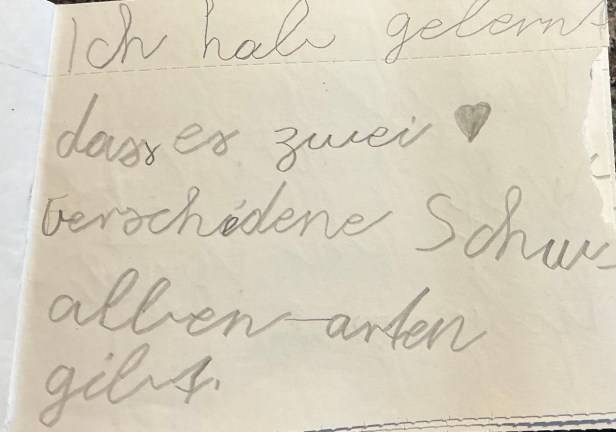 Ich hab gelernt
dass es zwei
verschidene Schw-
alben-arten
gibt.